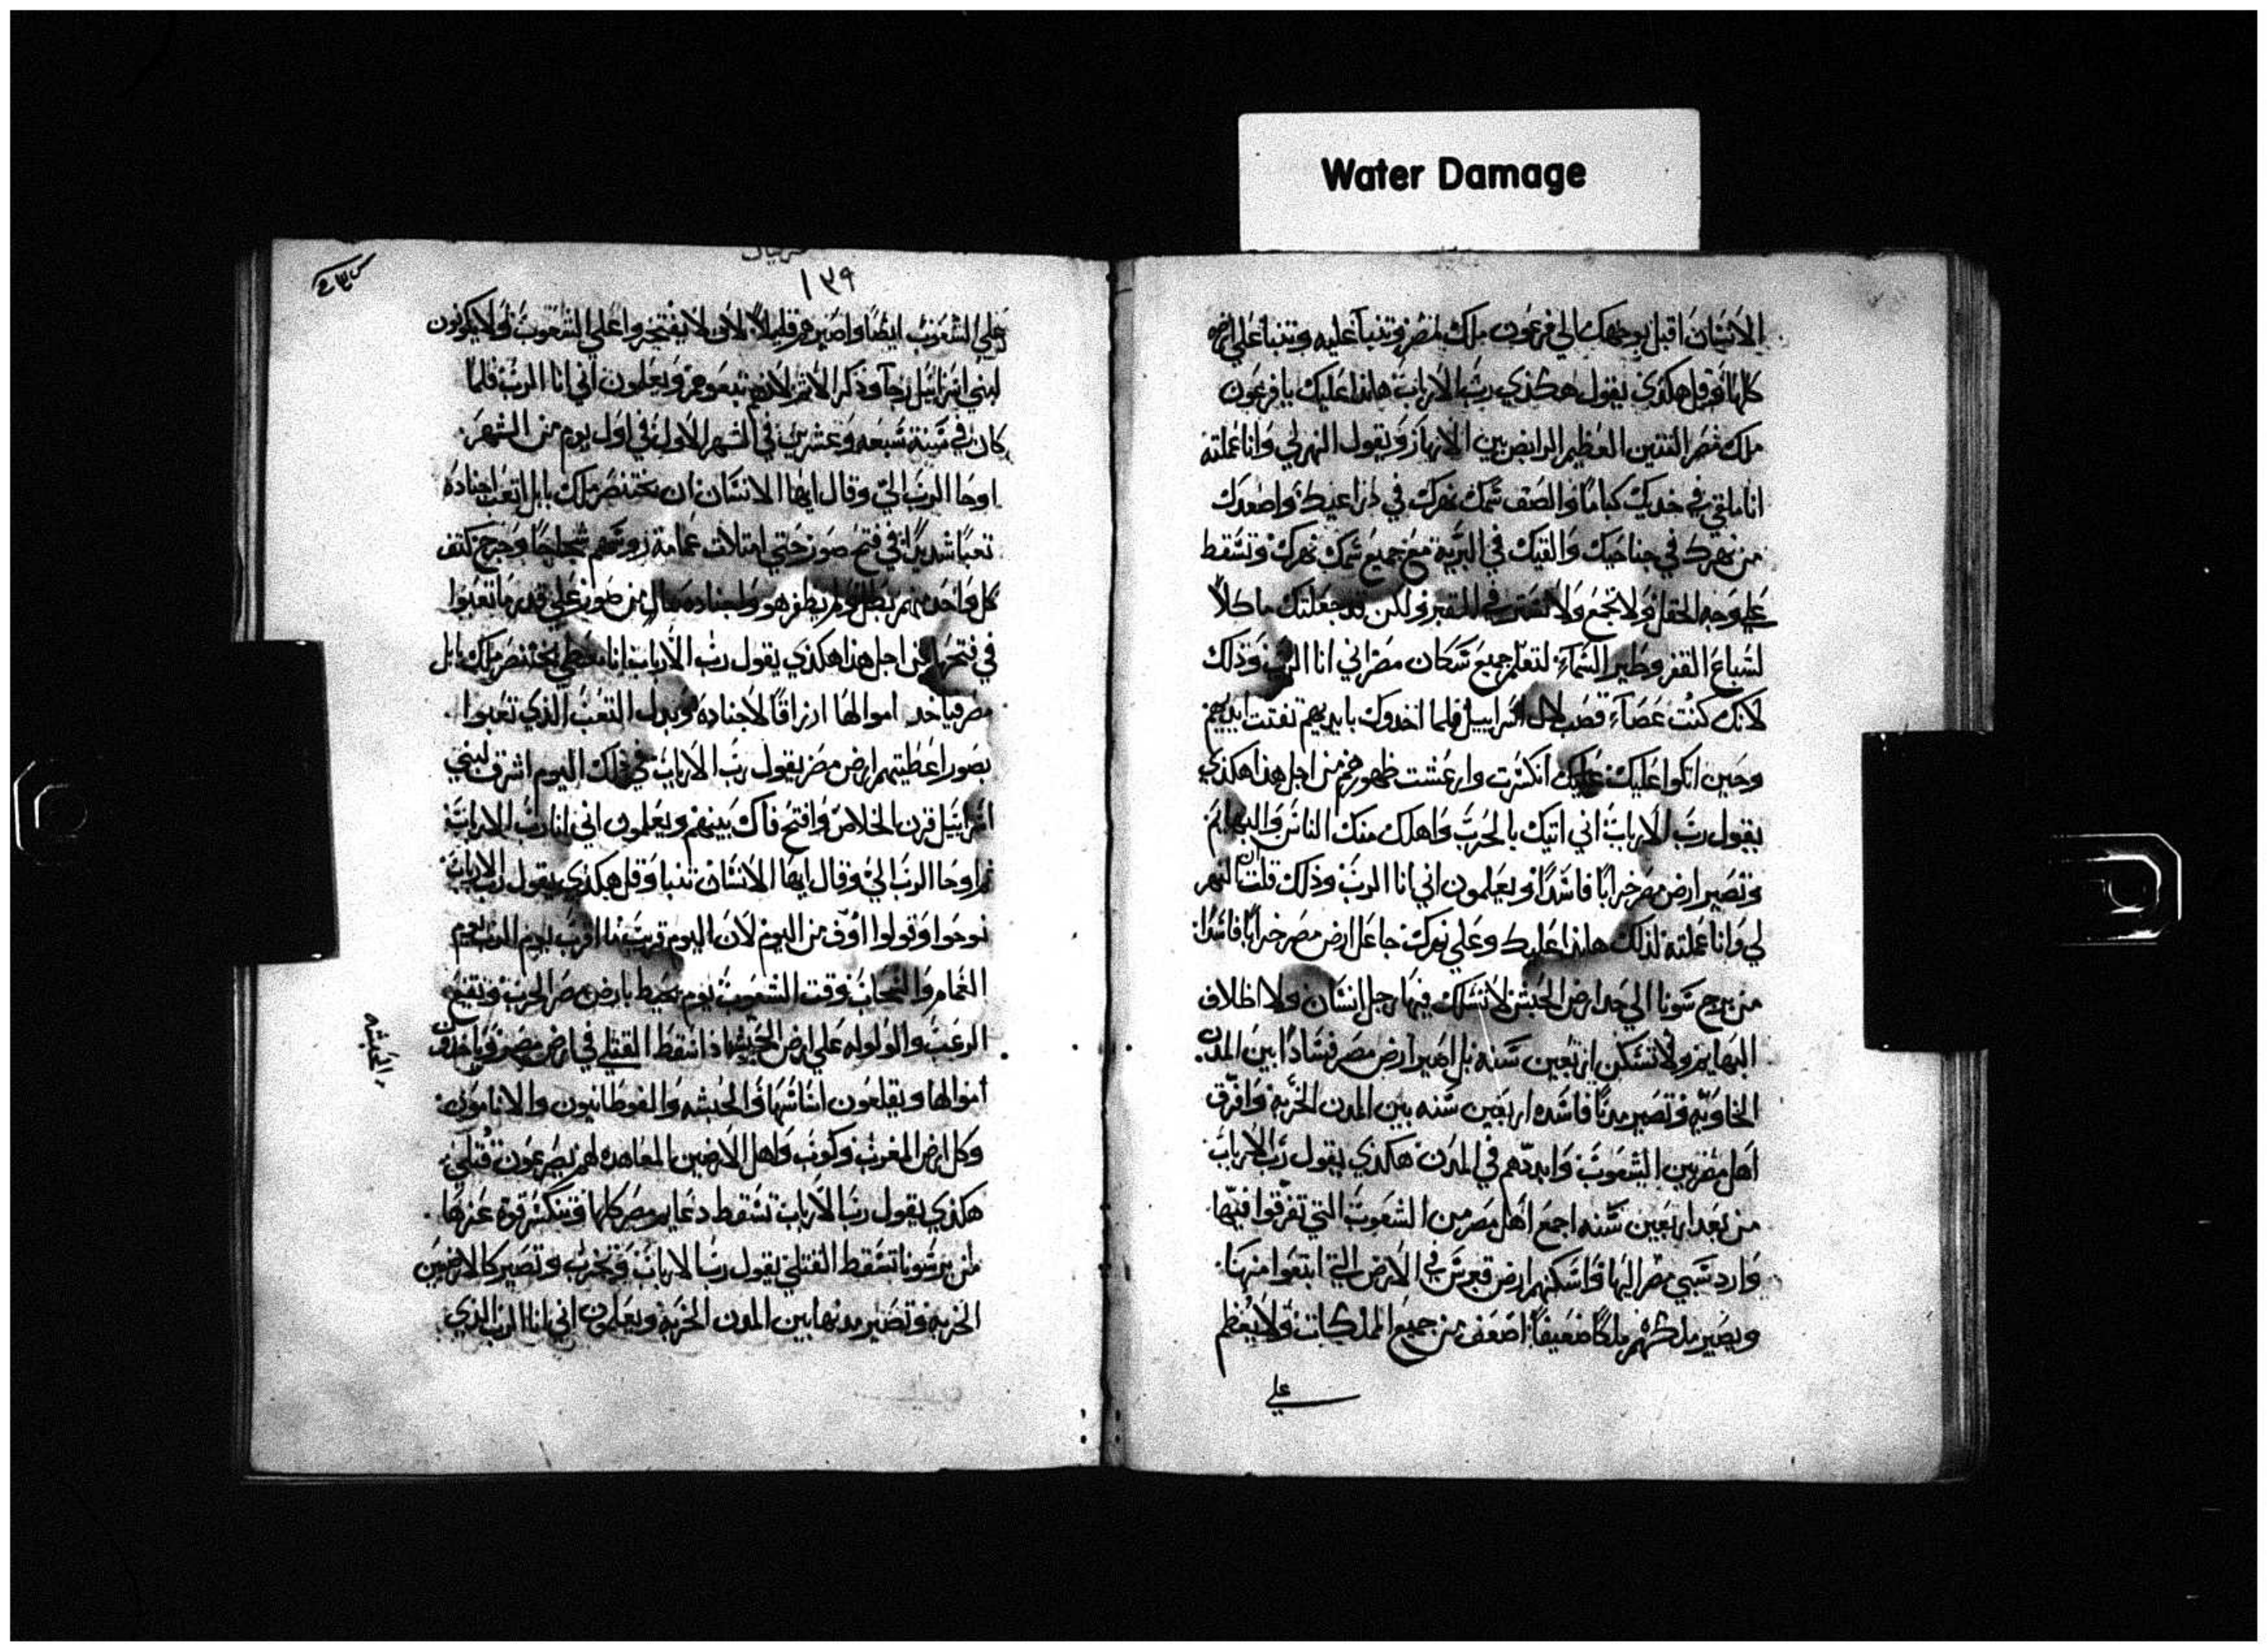 Water Damage
الانسان اقبل بوجهك الي فرعون ملك مصر وتنبا عليه وتنبا علي مصر
كلها وقل هكذي يقول هكذي رب الارباب هانذا عليك يا فرعون
ملك مصر التنين العظيم الرابض بين الانهار ويقول النهر لي وانا عملته
انا ملقي في خديك كباما والصق سمك نهرك في ذراعيك واصعدك
من نهرك في جناحيك والقيك في البرية مع جميع سمك نهرك وتسقط
علي وجه الحقل ولا تجمع ولا في القبر ولكن قد جعلتك ماكلا
لسباع القفر وطير السماء لتعلم جميع سكان مصر اني انا الرب وذلك
لانك كنت عصاء قصب لال اسراييل فلما اخدوك بايديهم تفتت ايديهم
وحين اتكوا عليك انكسرت وارعشت ظهورهم من اجل هذا هكذي
يقول رب الارباب اني اتيك بالحرب واهلك منك الناس والبهايم
وتصير ارض مصر خرابا فاسدا ويعلمون اني انا الرب وذلك قلت ان النهر
لي وانا عملته لذلك هانذا عليك وعلي نهرك جاعل ارض مصر خرابا فاسدا
من برج سونا الي حد ارض الحبش لا تسلك فيها رجل انسان ولا اظلاف
البهايم ولا تسكن اربعين سنه بل اصير ارض مصر فسادا بين المدن
الخاويه وتصير مدنها فاسده اربعين سنه بين المدن الخربه وافرق
اهل مصر بين الشعوب وابددهم في المدن هكذي يقول رب الارباب
من بعد اربعين سنه اجمع اهل مصر من الشعوب التي تفرقوا فيها
وارد سبي مصر اليها واسكنهم ارض في الارض التي ابتغوا منها
ويصير ملكهم ملكا ضعيفا اضعف من جميع المملكات ولا يعظم
علي
١٣٩
علي الشعوب ايضا واصيرهم قليلا لان لا يفتخروا علي الشعوب ولا يكونون
لبني اسراييل رجا وذكر الاثم لانهم تبعوهم ويعلمون اني انا الرب فلما
كان في سنة سبعه وعشرين في الشهر الاول في اول يوم من الشهر
اوحا الرب الي وقال ايها الانسان ان بختنصر ملك بابل اتعب اجناده
تعبا شديدا في فتح صور حتي امتلات عمامة روسهم وجرح كتف
كل واحد منهم ولم يظفر هو واجناده بمال من صور علي قدر ما تعبوا
في فتحها من اجل هذا هكذي يقول رب الارباب انا معطي بختنصر ملك بابل
مصر فياخد اموالها ارزاقا لاجناده وبدل التعب الذي تعبوا
بصور اعطيتهم ارض مصر يقول رب الارباب في ذلك اليوم اشرق لبني
اسراييل قرن الخلاص وافتح فاك بينهم ويعلمون اني انا رب الارباب
ثم اوحا الرب الي وقال ايها الانسان تنبا وقل هكذي يقول رب الارباب
نوحوا وقولوا اوف من اليوم لان اليوم قريب ما اقرب يوم الرب يوم
الغمام والسحاب وقت الشعوب يوم يحيط بارض مصر الحرب
الرعب والولوله علي ارض الحبشه اذا سقط القتلي في ارض مصر وياخذون
الحبشه
اموالها ويقلعون اساسها والحبشه والفوطانيون
وكل ارض المغرب وكوب واهل الارضين المعاهده لهم يصرعون قتلي
هكذي يقول رب الارباب تسقط دعايم مصر كلها وتنكسر قوة عزها
من برسونا تسقط القتلي يقول رب الارباب وتخرب وتصير كالارضين
الخربه وتصير مدنها بين المدن الخربه ويعلمون اني انا الرب الذي